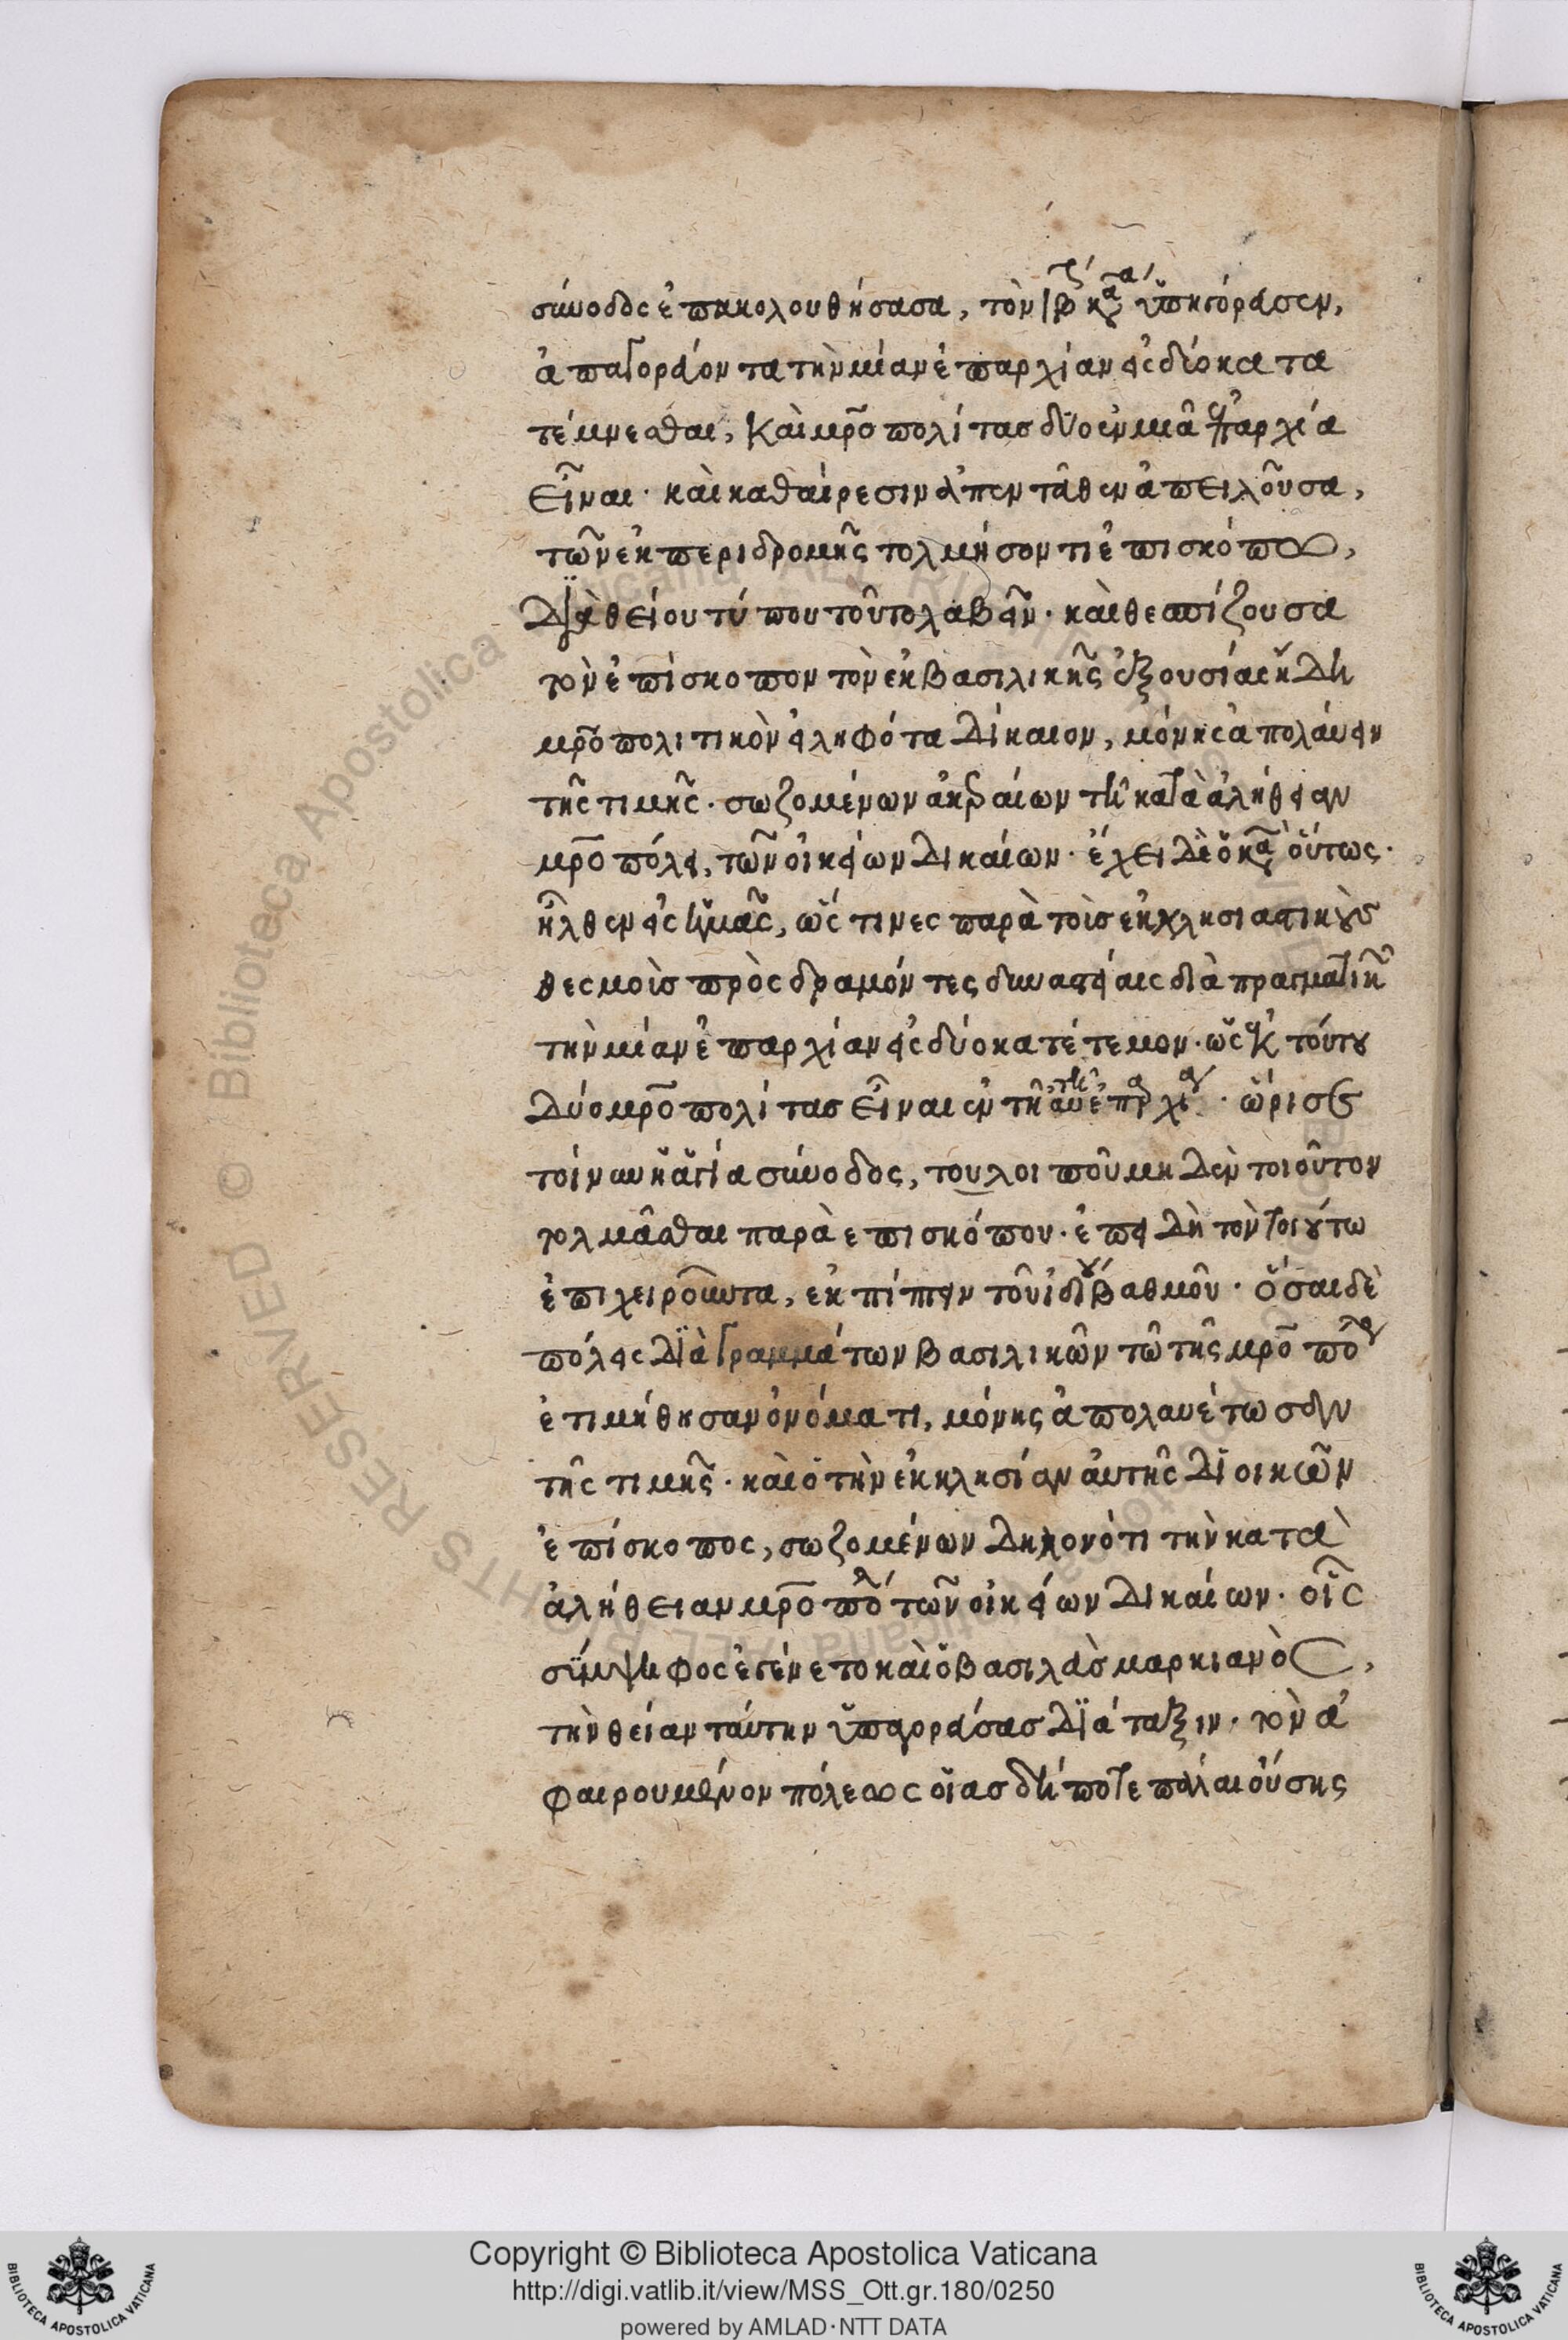 σύνοδος ἐπηκολουθήσασα, τὸν ιβ κα ὑπηγόρευσεν,
ἀπαγορεύοντα τὴν μίαν ἐπαρχίαν εἰς δύο κατα
τέμνεσθαι, καὶ μρο̅πολίτας δύο ἐν μιᾶ ἐπαρχία
εἶναι· καὶ καθαίρεσιν ἀπεντεῦθεν ἀπειλοῦσα,
τῶν ἐκ περιδρομῆς τολμήσοντι ἐπισκόπω,
διὰ θείου τύπου τοῦτο λαβεῖν· καὶ θεσπίζουσα
τὸν ἐπίσκοπον τὸν ἐκ βασιλικῆς ἐξουσίας ἤδη
μρο̅πολιτικὸν εἰληφότα δίκαιον, μόνης ἀπολαύειν
τῆς τιμῆς· σωζομένων ἀκεραίων τῆ κατὰ ἀλήθειαν
μρο̅πόλει, τῶν οἰκείων δικαίων· ἔχει δὲ ὁ κα οὕτως·
ἦλθεν εἰς ἡμᾶς, ὥς τινες παρὰ τοὺς ἐκκλησιαστικοὺς
θεσμοὺς προσδραμόντες δυναστείαις διὰ πραγματικῶν
τὴν μίαν ἐπαρχίαν εἰς δύο κατέτεμον· ὡς ἐκ τούτου
δύο μρο̅πολίτας εἶναι ἐν τῆ αὐτῆ ἐπαρχία· ὥρισε
τοίνυν ἡ ἁγία σύνοδος, τουλοιποῦ μηδὲν τοιοῦτον
τολμᾶσθαι παρὰ ἐπισκόπου· ἐπειδὴ τὸν τοιούτω
ἐπιχειροῦντα, ἐκπίπτειν τοῦ ἰδίου βαθμοῦ· ὅσαι δὲ
πόλεις διὰ γραμμάτων βασιλικῶν τῶ τῆς μρο̅πόλεως
ἐτιμήθησαν ὀνόματι, μόνης ἀπολαυέτωσαν
τῆς τιμῆς· καὶ ὁ τὴν ἐκκλησίαν αὐτῆς διοικῶν
ἐπίσκοπος, σωζομένων δηλονότι τὴν κατὰ
ἀλήθειαν μρο̅πόλει τῶν οἰκείων δικαίων· οἷς
σύμψηφος ἐγένετο καὶ ὁ βασιλεὺς μαρκιανὸς,
τὴν θείαν ταύτην ὑπαγορεύσας διάταξιν· τὸν ἀ
φαιρουμένον πόλεως οἵας δήποτε πάλαι οὔσης
Copyright © Biblioteca Apostolica Vaticana
http://digi.vatlib.it/view/MSS_Ott.gr.180/0250
powered by AMLAD·NTT DATA